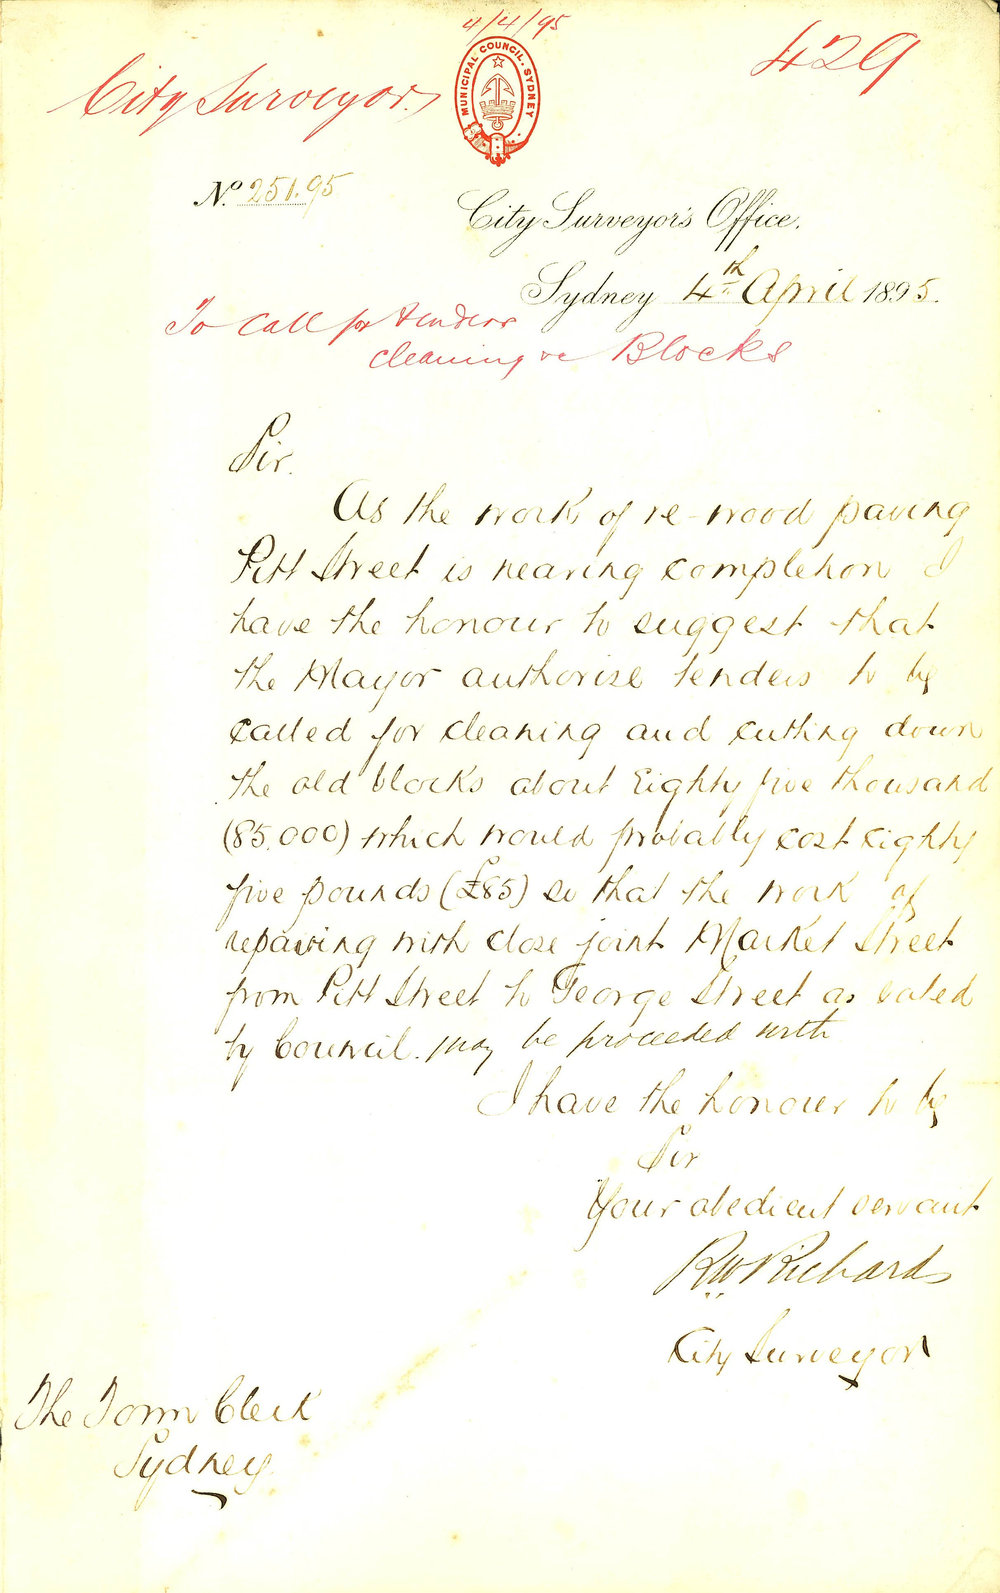 4/4/95
429
City Surveyor.
MUNICIPAL COUNCIL. SYDNEY
No. 251.95
City Surveyor's Office.
Sydney 4th April 1895.
To call for tenders
cleaning re Blocks
Sir.
As the work of re-wood paving
Pitt Street is nearing completion I
have the honour to suggest that
the Mayor authorise tenders to be
called for cleaning and cutting down
the old blocks about Eighty five thousand
(85,000) which would probably cost eighty
five pounds (£85) so that the work of
repaving with close joint Market Street
from Pitt Street to George Street as voted
by Council. may be proceeded with
I have the honour to be
Sir
Your obedient servant
RW Richards
City Surveyor
The Town Clerk
Sydney